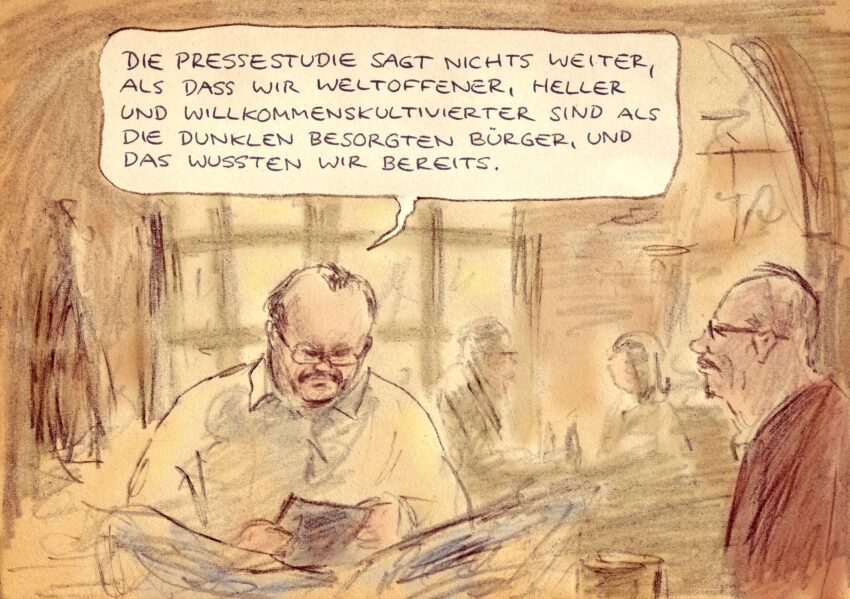 DIE PRESSESTUDIE SAGT NICHTS WEITER,
ALS DASS WIR WELTOFFENER, HELLER
UND WILLKOMMENSKULTIVIERTER SIND ALS
DIE DUNKLEN BESORGTEN BÜRGER, UND
DAS WUSSTEN WIR BEREITS.